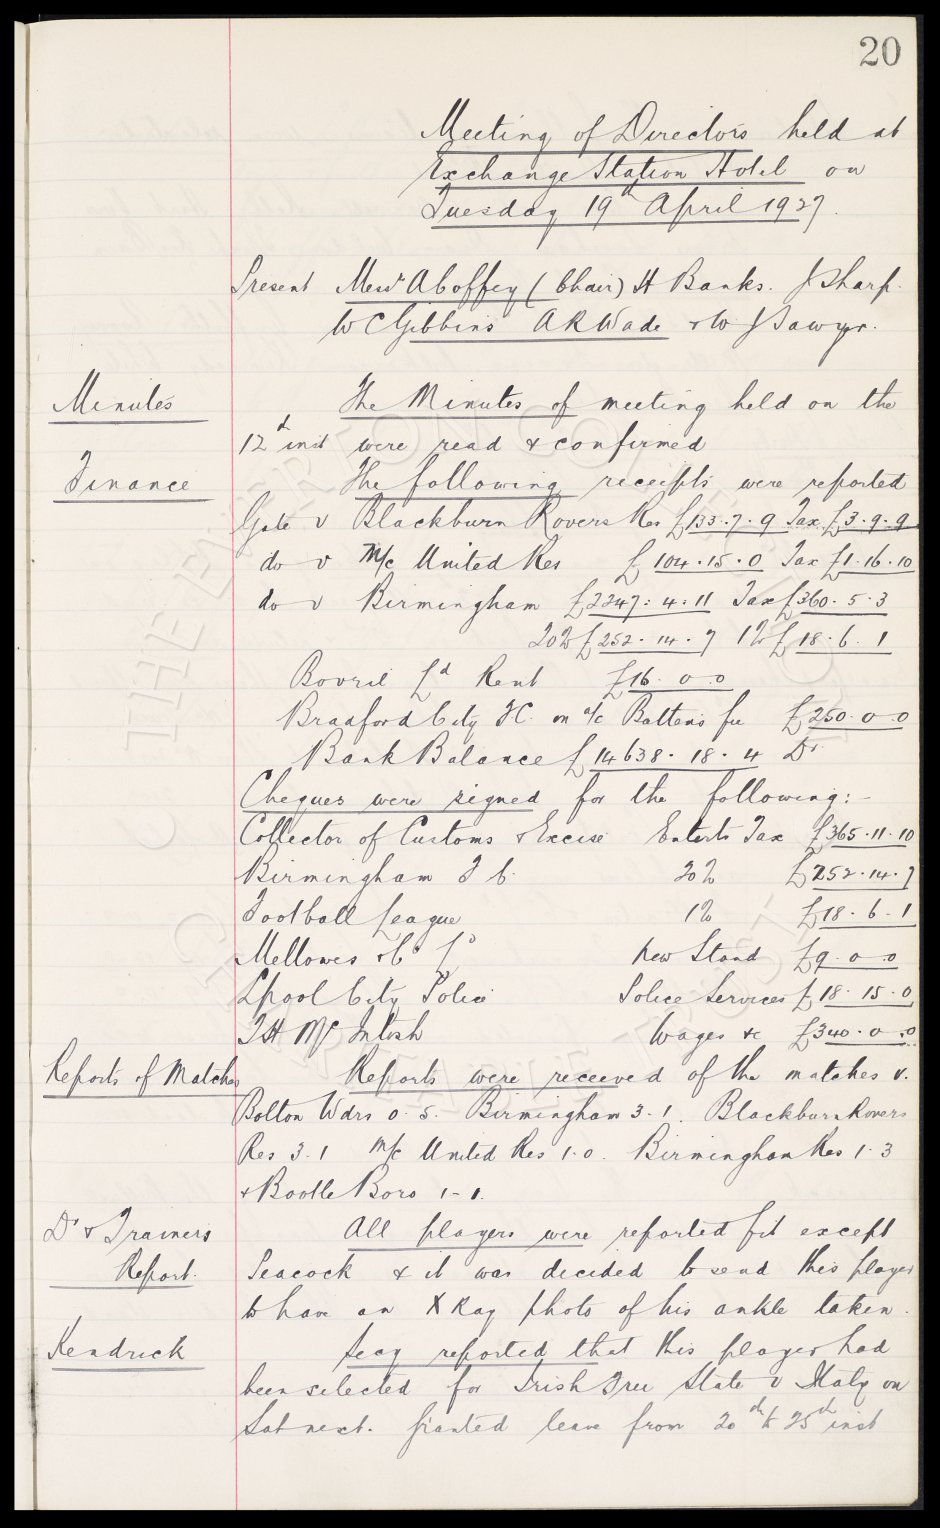 20
Meeting of Directors held at
Exchange Station Hotel on
Tuesday 19th April 1927.
Present Messrs A Coffey (Chair) H Banks. J Sharp.
W C Gibbins A R Wade & W J Sawyer.
Minutes The Minutes of meeting held on the
12th inst were read & confirmed
Finance The following receipts were reported
Gate v Blackburn Rovers Res £133.7.9 Tax £3.9.9
do v M/c United Res £104.15.0 Tax £1.16.10
do v Birmingham £2247:4:11 Tax £360.5.3
20% £252.14.7 1% £18.6.1
Bovril Ld Rent £16.0.0
Bradford City FC. on a/c Batten's fee £250.0.0
Bank Balance £14638.18.4 Dr
Cheques were signed for the following:-
Collector of Customs & Excise Enterts Tax £365.11.10
Birmingham F C. 20% £252.14.7
Football League 1% £18.6.1
Mellowes & Co Ld New Stand £9.0.0
Lpool City Police Police Services £18.15.0
T H McIntosh Wages &c £340.0.0
Reports of Matches Reports were received of the matches v.
Bolton Wdrs 0.5. Birmingham 3.1. Blackburn Rovers
Res 3.1 M/c United Res 1.0. Birmingham Res 1.3
& Bootle Boro 1-1.
Dr & Trainers All players were reported fit except
Report. Peacock & it was decided to send this player
to have an X Ray photo of his ankle taken.
Kendrick Secy reported that this player had
been selected for Irish Free State v Italy on
Sat next. Granted leave from 20th to 25th inst
© THE EVERTON COLLECTION
CHARITABLE TRUST